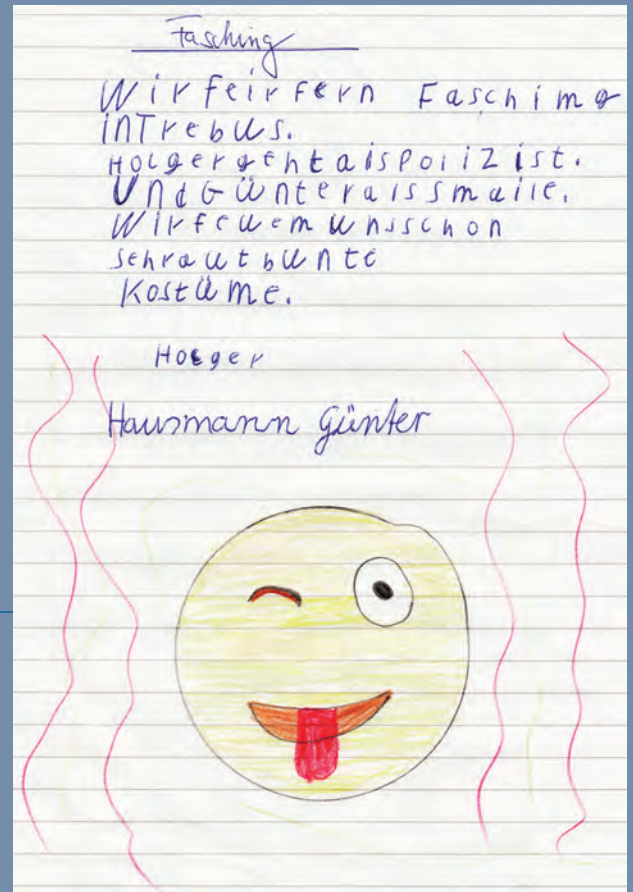 Fasching
Wir feirfern Faschimg
inTrebus.
Holgergehtalspolizist.
UndGünteralssmaile.
Wirfeuemunsschon
sehrautbunte
Kostüme.
Holger
Hausmann Günter